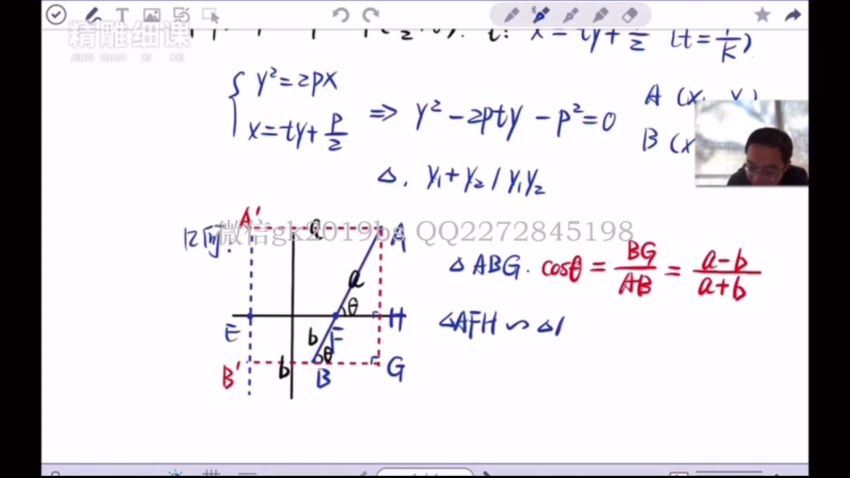 精雕细课
JING DIAO XI KE
x = ty + 2 (t = 1/K)
{ y² = 2px
x = ty + p/2
⇒ y² - 2pty - p² = 0
A (x
B (x
Δ. y₁ + y₂ / y₁y₂
微信gk2019bs QQ2272845198
A' a A
a
θ
E F H
b
θ
B' b B G
△ABG. cosθ = BG/AB = a-b/a+b
△AFH ∽ △